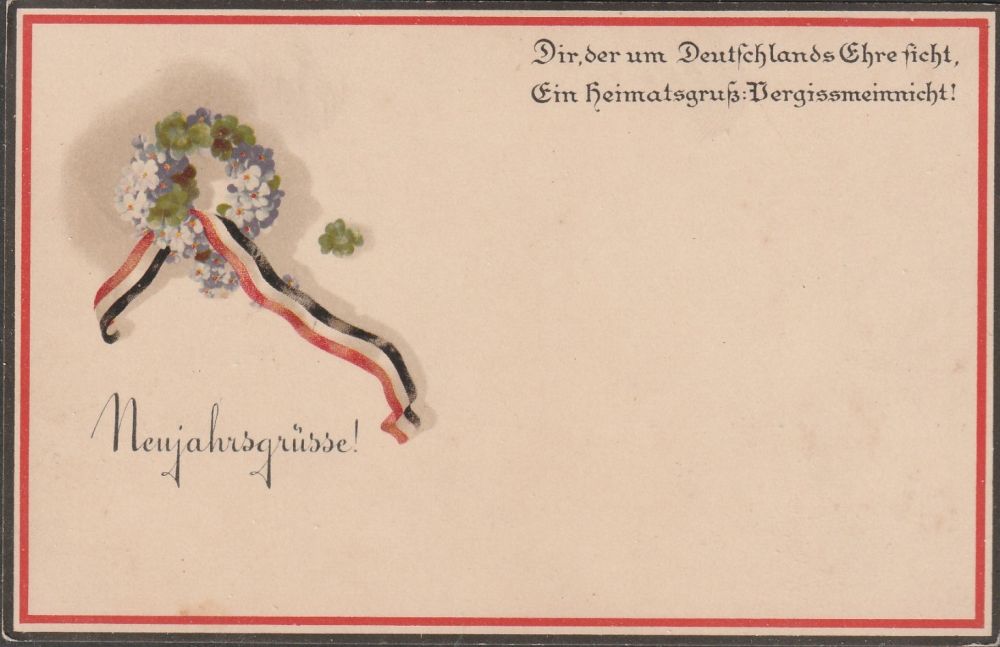 Dir, der um Deutſchlands Ehre ficht,
Ein Heimatsgruß: Vergissmeinnicht!
Neujahrsgrüsse!